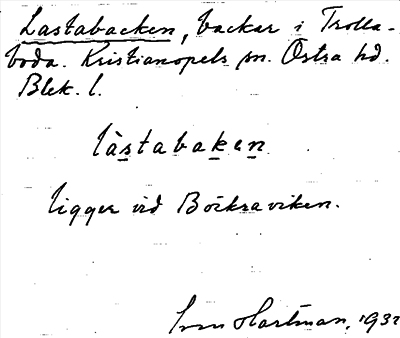 Lastabacken, backar i Trolla-
boda. Kristianopels sn. Östra hd.
Blek. l.
làstabaken
ligger vid Böckraviken.
Hartman, 1932